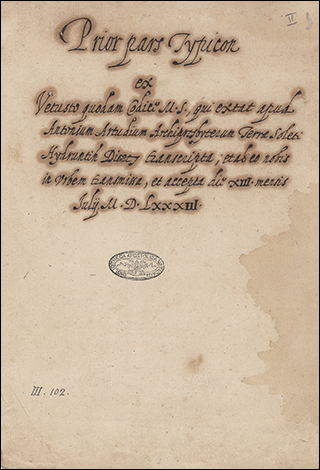 II
Prior pars Typicon
ex
Vetusto quodam Codice M.S., qui extat apud
Antonium Arcudium Archipresbyterum Terræ Soleti
Hydruntin Dioec. transcripta; et ab eo nobis
in Urbem transmissa, et accepta die XIII. mensis
Julij M. D. LXXXIII.
III. 102.